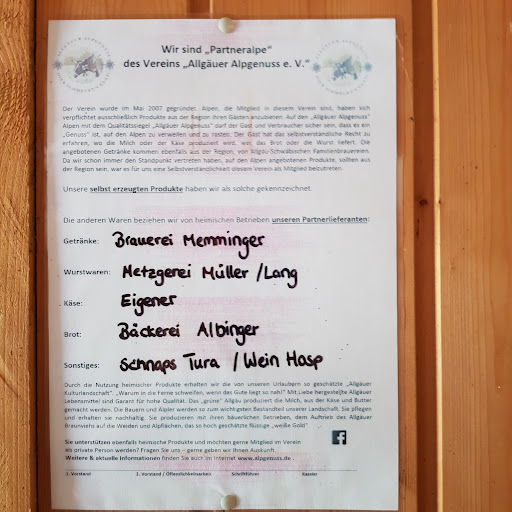 Wir sind „Partneralpe"
des Vereins „Allgäuer Alpgenuss e. V."
Der Verein wurde im Mai 2007 gegründet. Alpen, die Mitglied in diesem Verein sind, haben sich
verpflichtet ausschließlich Produkte aus der Region ihren Gästen anzubieten. Auf den „Allgäuer Alpgenuss"
Alpen mit dem Qualitätssiegel „Allgäuer Alpgenuss" darf der Gast und Verbraucher sicher sein, dass es ein
„Genuss" ist, auf den Alpen zu verweilen und zu rasten. Der Gast hat das selbstverständliche Recht zu
erfahren, wo die Milch oder der Käse produziert wird, wer das Brot oder die Wurst liefert. Die
angebotenen Getränke kommen ebenfalls aus der Region, von Allgäu-Schwäbischen Familienbrauereien.
Da wir schon immer den Standpunkt vertreten haben, auf den Alpen angebotenen Produkte, sollten aus
der Region sein, war es für uns eine Selbstverständlichkeit diesem Verein als Mitglied beizutreten.
Unsere selbst erzeugten Produkte haben wir als solche gekennzeichnet.
Die anderen Waren beziehen wir von heimischen Betrieben unseren Partnerlieferanten:
Getränke: Brauerei Memminger
Wurstwaren: Metzgerei Müller / Lang
Käse: Eigener
Brot: Bäckerei Albinger
Sonstiges: Schnaps Tura / Wein Hasp
Durch die Nutzung heimischer Produkte erhalten wir die von unseren Urlaubern so geschätzte „Allgäuer
Kulturlandschaft". „Warum in die Ferne schweifen, wenn das Gute liegt so nah!" Mit Liebe hergestellte Allgäuer
Lebensmittel sind Garant für hohe Qualität. Das „grüne" Allgäu produziert die Milch, aus der Käse und Butter
gemacht werden. Die Bauern und Älpler werden so zum wichtigsten Bestandteil unserer Landschaft. Sie pflegen
und erhalten sie nachhaltig. Sie produzieren mit ihren bäuerlichen Betrieben, dem Auftrieb des Allgäuer
Braunviehs auf die Weiden und Alpflächen, das so hoch geschätzte flüssige „weiße Gold"
Sie unterstützen ebenfalls heimische Produkte und möchten gerne Mitglied im Verein
als private Person werden? Fragen Sie uns – gerne geben wir Ihnen Auskunft.
Weitere & aktuelle Informationen finden Sie auch im Internet www.alpgenuss.de .
1. Vorstand 2. Vorstand / Öffentlichkeitsarbeit Schriftführer Kassier